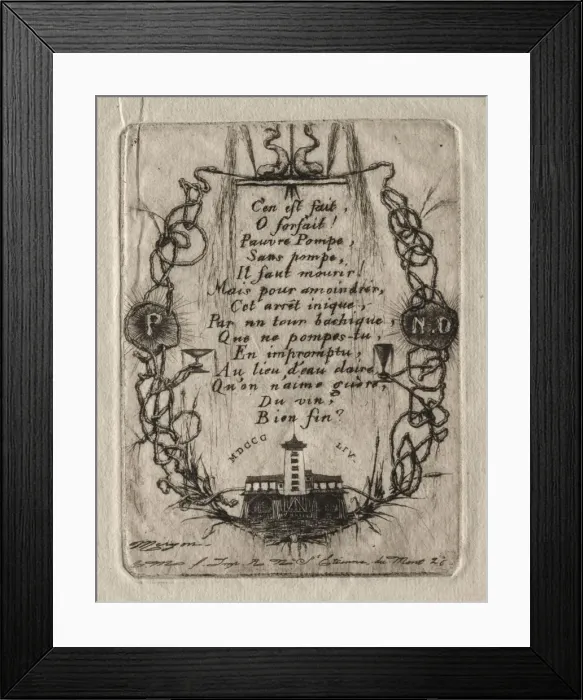 C'en est fait,
O forfait!
Pauvre Pompe,
Sans pompe,
Il faut mourir!
Mais pour amoindrir,
Cet arrêt inique,
Par un tour bachique,
Que ne pompes-tu,
En impromptu,
Au lieu d'eau claire,
Qu'on n'aime guère,
Du vin,
Bien fin?
P
N.D
MDCCC
LIV.
Meryon
Imp. R. Nve St Etienne du Mont 26